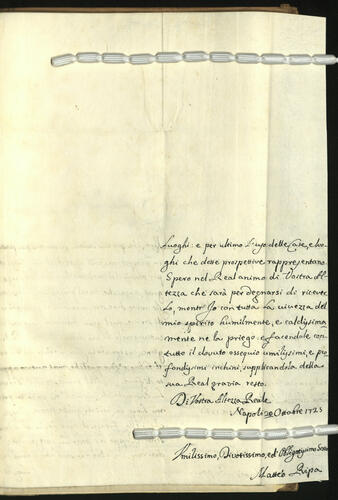 luoghi: e per ultimo l'uso delle Case, e luo-
ghi che dette prospettive rappresentano.
Spero nel Real animo di Vostra Al-
tezza che sarà per degnarsi di riceve
lo, mentr' Io con tutta la vivezza del
mio spirito humilmente, e caldissima
mente ne la priego. e facendole con
tutto il dovuto ossequio umilissimi, e pro
fondissimi inchini, supplicandola della
sua Real grazia resto.
Di Vostra Altezza Reale
Napoli Ottobre 1725
Umilissimo, Divotissimo, ed Obligatissimo
Matteo Ripa